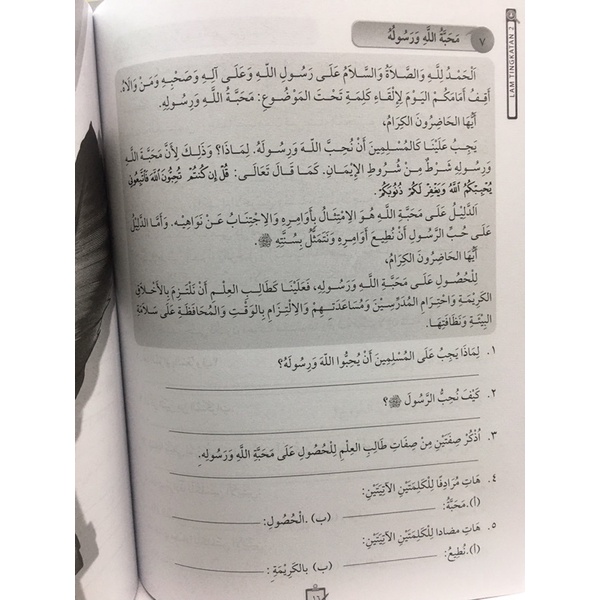 LAM TINGKATAN 2
٧ مَحَبَّةُ اللَّهِ وَرَسُولُهُ
اَلْحَمْدُ لِلَّهِ وَالصَّلَاةُ وَالسَّلَامُ عَلَى رَسُولِ اللَّهِ وَعَلَى آلِهِ وَصَحْبِهِ وَمَنْ وَالَاهُ.
أَقِفُ أَمَامَكُمُ الْيَوْمَ لِإِلْقَاءِ كَلِمَةٍ تَحْتَ الْمَوْضُوعِ: مَحَبَّةُ اللَّهِ وَرَسُولِهِ.
أَيُّهَا الْحَاضِرُونَ الكِرَامُ،
يَجِبُ عَلَيْنَا كَالْمُسْلِمِينَ أَنْ نُحِبَّ اللَّهَ وَرَسُولَهُ. لِمَاذَا؟ وَذَلِكَ لِأَنَّ مَحَبَّةَ اللَّهِ
وَرَسُولِهِ شَرْطٌ مِنْ شُرُوطِ الْإِيْمَانِ. كَمَا قَالَ تَعَالَى: قُلْ إِن كُنتُمْ تُحِبُّونَ ٱللَّهَ فَٱتَّبِعُونِى
يُحْبِبْكُمُ ٱللَّهُ وَيَغْفِرْ لَكُمْ ذُنُوبَكُمْ.
اَلدَّلِيْلُ عَلَى مَحَبَّةِ اللَّهِ هُوَ الاِمْتِثَالُ بِأَوَامِرِهِ وَالاِجْتِنَابُ عَنْ نَوَاهِيْهِ. وَأَمَّا الدَّلِيْلُ
عَلَى حُبِّ الرَّسُولِ أَنْ نُطِيعَ أَوَامِرَهُ وَنَتَمَثَّلُ بِسُنَّتِهِ ﷺ.
أَيُّهَا الْحَاضِرُونَ الكِرَامُ،
لِلْحُصُولِ عَلَى مَحَبَّةِ اللَّهِ وَرَسُولِهِ، فَعَلَيْنَا كَطَالِبِ العِلْمِ أَنْ نَلْتَزِمَ بِالْأَخْلَاقِ
الكَرِيْمَةِ وَاحْتِرَامِ الْمُدَرِّسِيْنَ وَمُسَاعَدَتِهِمْ وَالاِلْتِزَامِ بِالوَقْتِ وَالْمُحَافَظَةِ عَلَى سَلَامَةِ
البِيْئَةِ وَنَظَافَتِهَا.
١. لِمَاذَا يَجِبُ عَلَى الْمُسْلِمِينَ أَنْ يُحِبُّوا اللَّهَ وَرَسُولَهُ؟
٢. كَيْفَ نُحِبُّ الرَّسُولَ ﷺ؟
٣. اُذْكُرْ صِفَتَيْنِ مِنْ صِفَاتِ طَالِبِ العِلْمِ لِلْحُصُولِ عَلَى مَحَبَّةِ اللَّهِ وَرَسُولِهِ.
٤. هَاتِ مُرَادِفًا لِلْكَلِمَتَيْنِ الآتِيَتَيْنِ:
(أ). مَحَبَّةُ: (ب). الْحُصُولِ:
٥. هَاتِ مضادا لِلْكَلِمَتَيْنِ الآتِيَتَيْنِ:
(أ). نُطِيعُ: (ب) بالكَرِيْمَةِ:
١٦